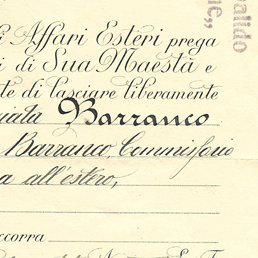 Affari Esteri prega
di Sua Maestà e
te di lasciare liberamente
Barranco
Barranco, Commissario
a all'estero,
ccorra